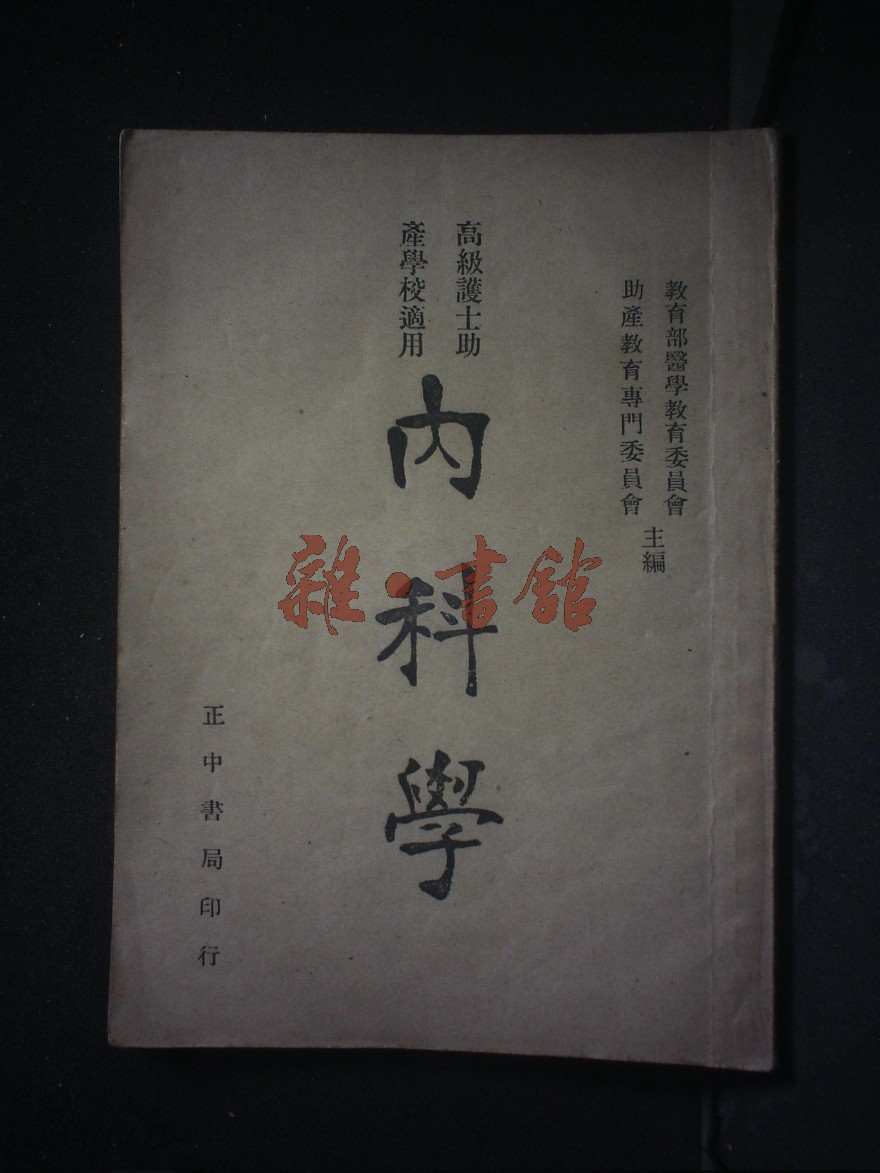 教育部醫學教育委員會
助產教育專門委員會
主編
高級護士助
產學校適用
內科學
雜·書館
正中書局印行